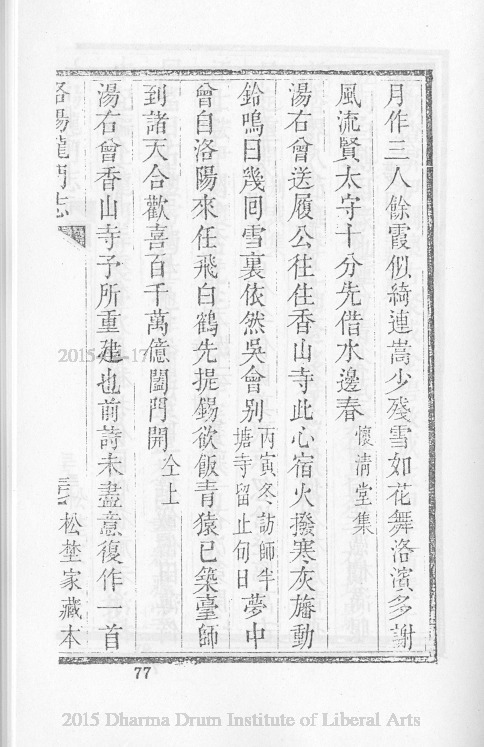 月作三人餘霞似綺連嵩少殘雪如花舞洛濱多謝
風流賢太守十分先借水邊春 懷清堂集
湯右曾送履公往住香山寺此心宿火撥寒灰旛動
鈴鳴日幾回雪裏依然吳會別 丙寅冬訪師半塘寺留止旬日 夢中
曾自洛陽來任飛白鶴先提錫欲飯青猿已築臺師
到諸天合歡喜百千萬億闔門開 仝上
湯右曾香山寺予所重建也前詩未盡意復作一首
洛陽龍門志 松埜家藏本
77
2015 Dharma Drum Institute of Liberal Arts